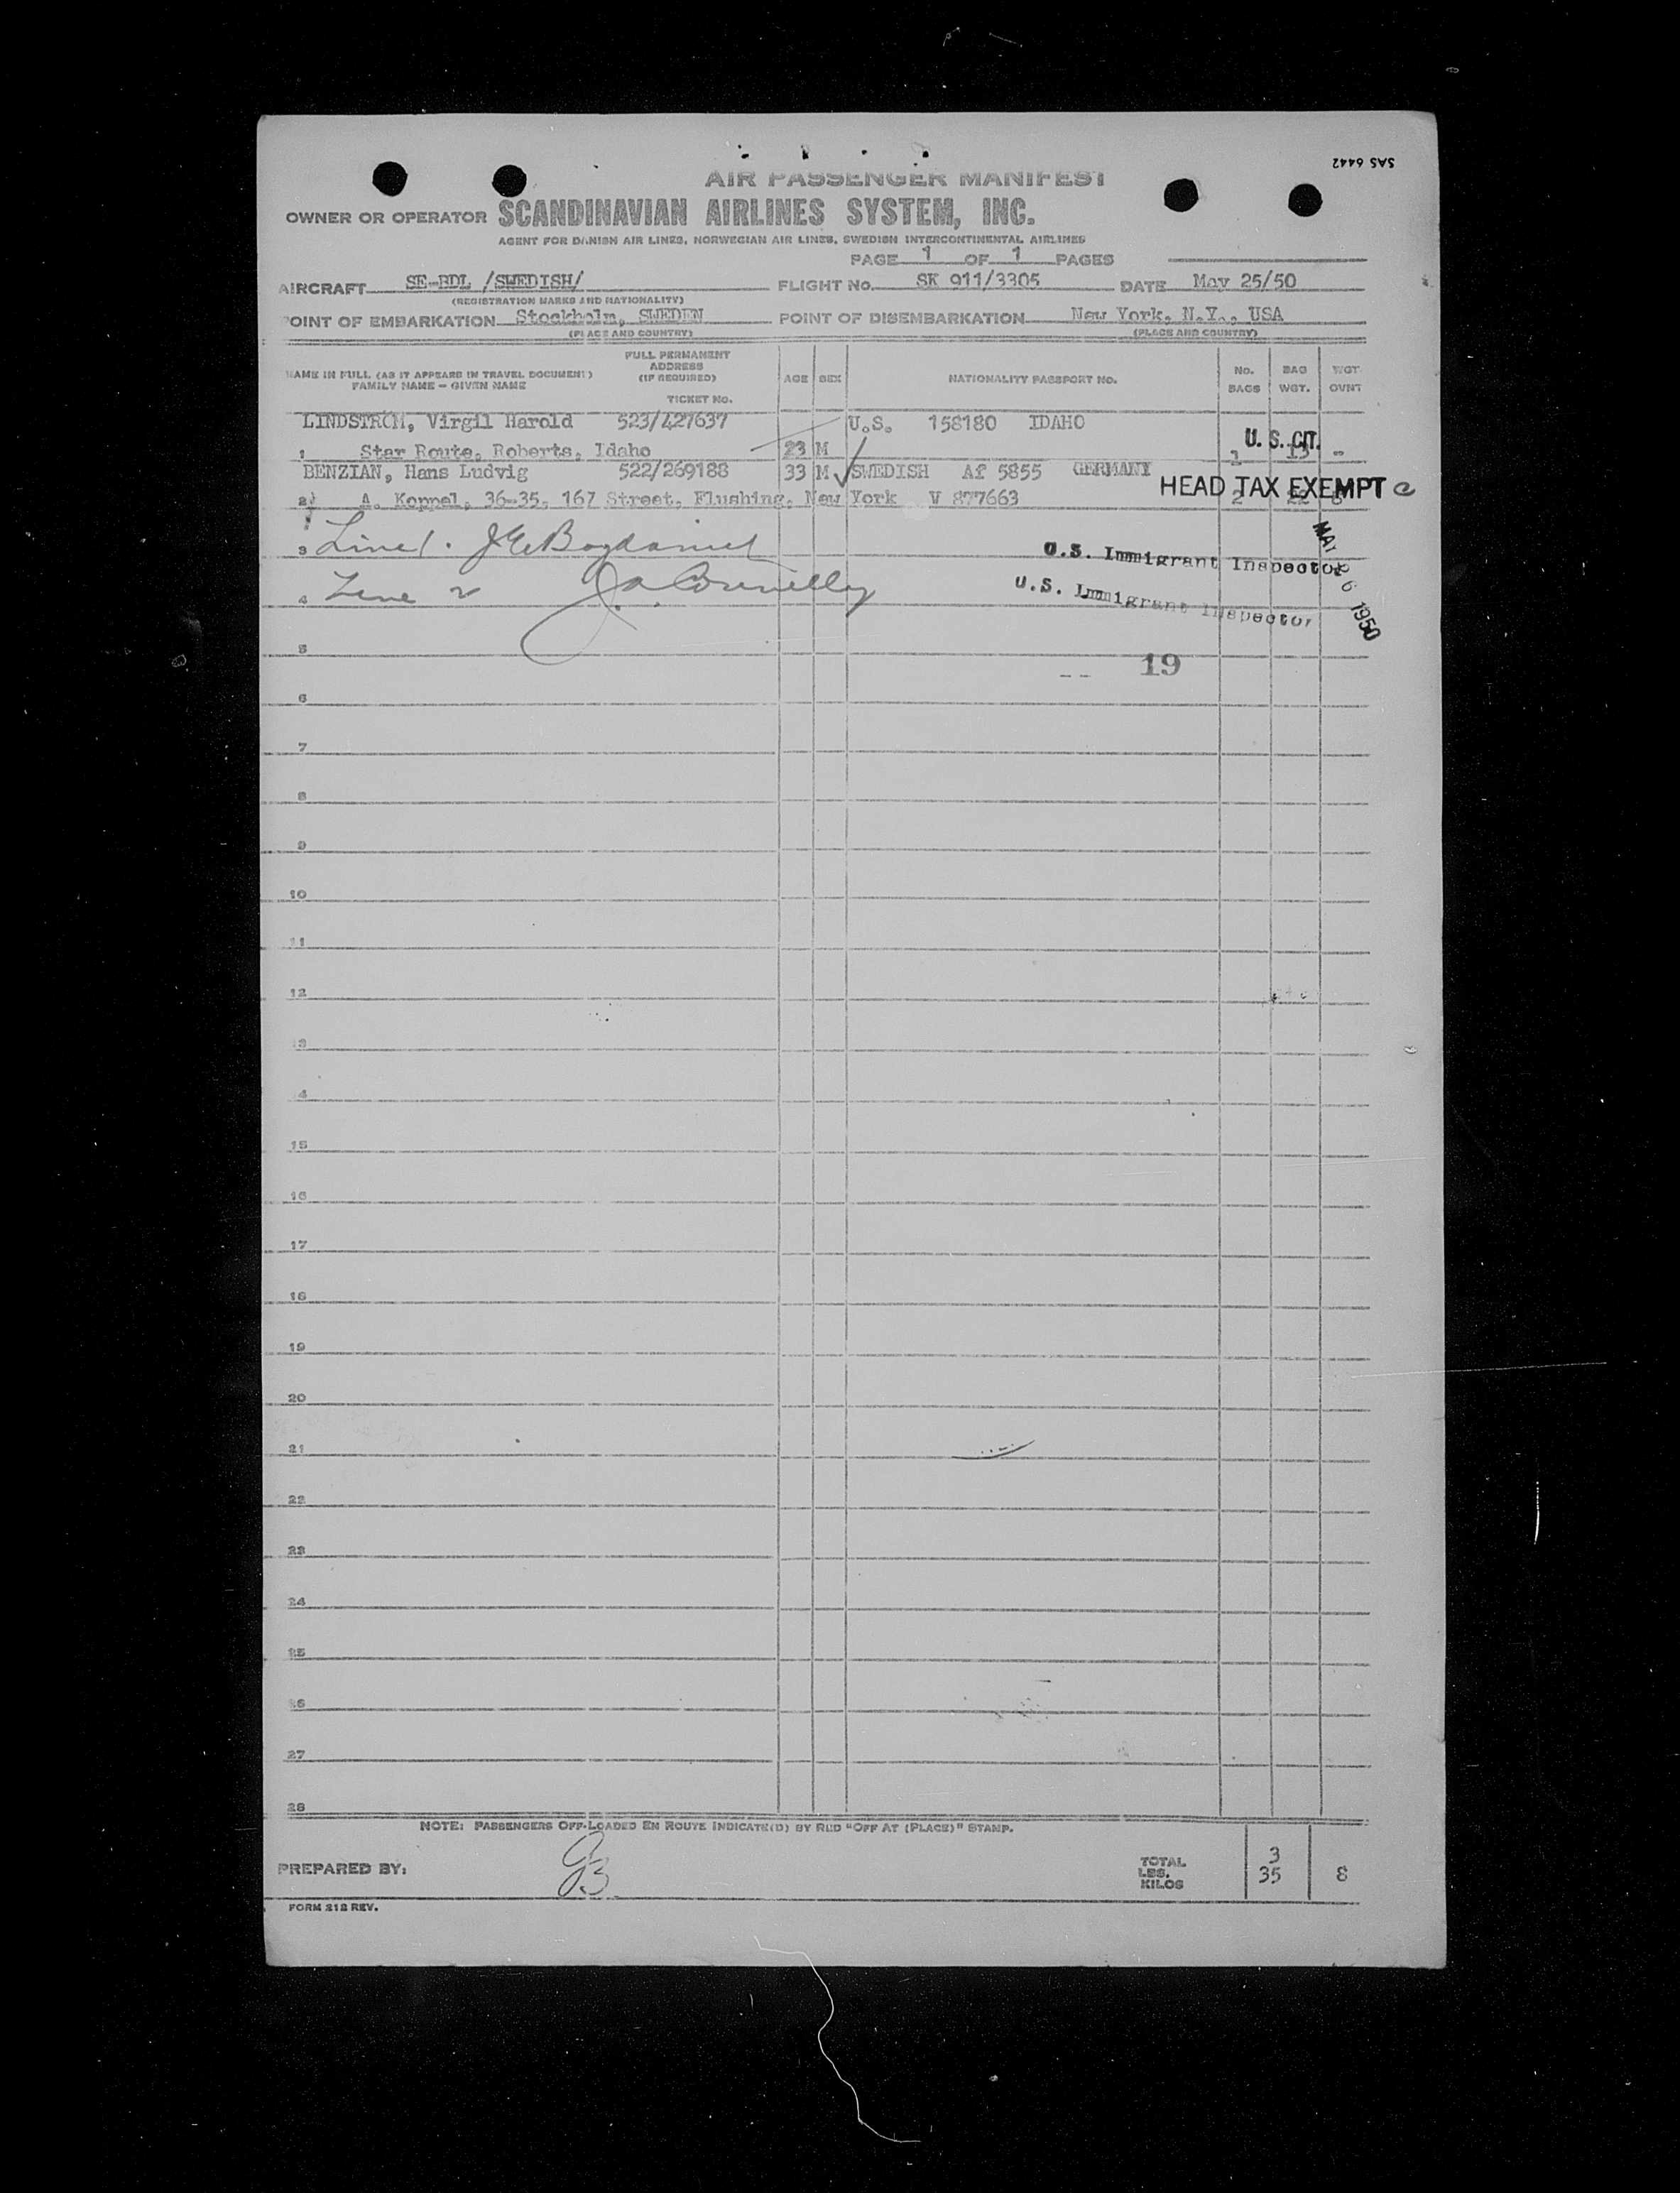 SAS 6442
AIR PASSENGER MANIFEST
OWNER OR OPERATOR SCANDINAVIAN AIRLINES SYSTEM, INC.
AGENT FOR DANISH AIR LINES, NORWEGIAN AIR LINES, SWEDISH INTERCONTINENTAL AIRLINES
PAGE 1 OF 1 PAGES
AIRCRAFT SE-BDL /SWEDISH/ FLIGHT NO. SK 911/3305 DATE May 25/50
(REGISTRATION MARKS AND NATIONALITY)
POINT OF EMBARKATION Stockholm, SWEDEN POINT OF DISEMBARKATION New York, N.Y., USA
(PLACE AND COUNTRY) (PLACE AND COUNTRY)
NAME IN FULL (AS IT APPEARS IN TRAVEL DOCUMENT) FAMILY NAME - GIVEN NAME FULL PERMANENT ADDRESS (IF REQUIRED) TICKET NO. AGE SEX NATIONALITY PASSPORT NO. NO. BAGS BAG WGT. WGT OVNT
LINDSTROM, Virgil Harold 523/427637 U.S. 158180 IDAHO
U. S. CIT.
1 Star Route, Roberts, Idaho 23 M 1 13 -
BENZIAN, Hans Ludvig 522/269188 33 M SWEDISH Af 5855 GERMANY
HEAD TAX EXEMPT
2 A. Koppel, 36-35, 167 Street, Flushing, New York V 877663 2 22 8
3 Line 1. U.S. Immigrant Inspector
MAY 26 1950
4 Line 2 J.A. Connelly U.S. Immigrant Inspector
5
19
6
7
8
9
10
11
12
13
14
15
16
17
18
19
20
21
22
23
24
25
26
27
28
NOTE: PASSENGERS OFF-LOADED EN ROUTE INDICATE(D) BY RED "OFF AT (PLACE)" STAMP.
PREPARED BY: TOTAL 3
LBS.
KILOS 35 8
FORM 212 REV.